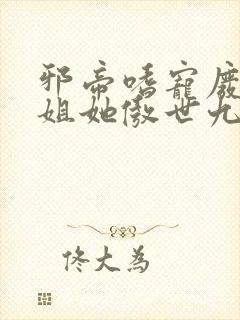 邪帝嗜寵廢
姐她傲世九
佟大為